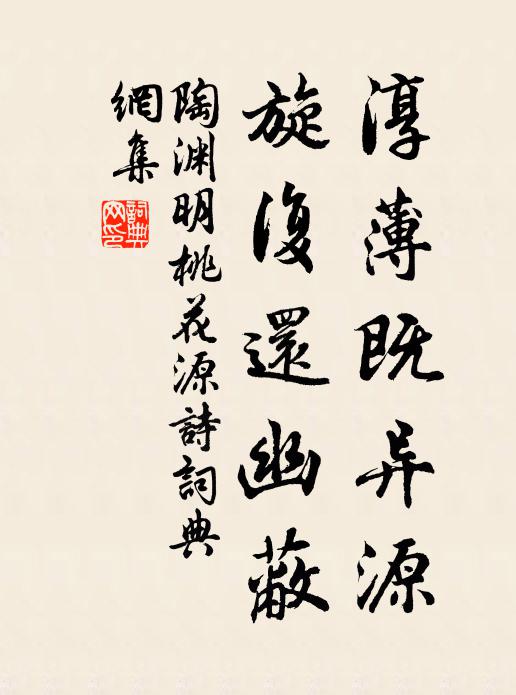 淳薄既异源
旋復還幽蔽
陶渊明桃花源詩詞典
網集
詞典
网印